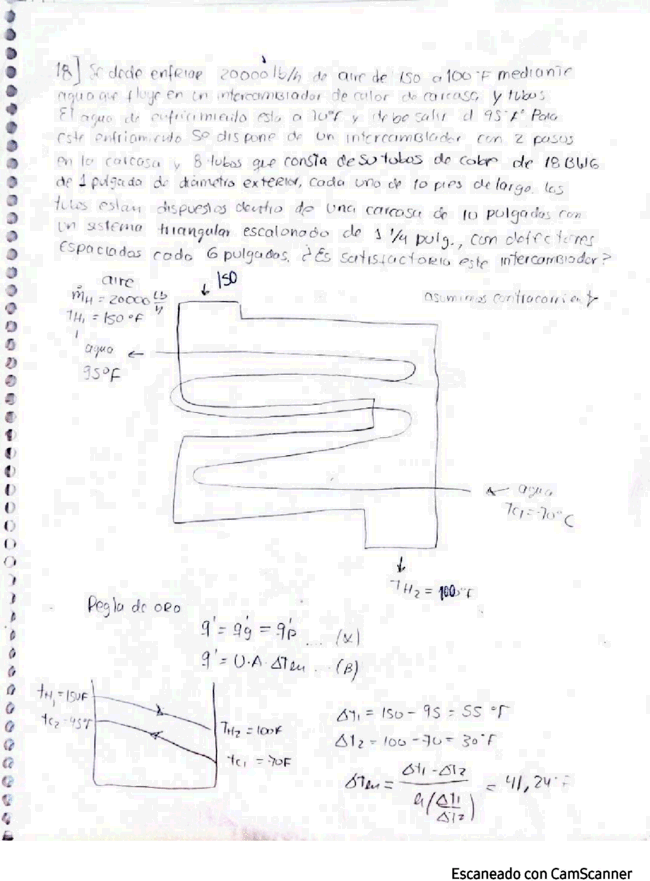 18] Se dede enfriar 20000 lb/h de aire de 150 a 100°F mediante
agua que fluye en un intercambiador de calor de carcasa y tubos.
El agua de enfriamiento esta a 70°F y debe salir a 95°F Para
este enfriamiento se dispone de un intercambiador con 2 pasos
en la carcasa y 8 tubos que consta de 50 tubos de cobre de 18 BWG
de 1 pulgada de diámetro exterior, cada uno de 10 pies de largo. los
tubos estan dispuestos dentro de una carcasa de 10 pulgadas con
un sistema triangular escalonado de 1 1/4 pulg., con deflectores
Espaciados cada 6 pulgadas. ¿Es satisfactorio este intercambiador?
aire
ṁH = 20000 lb/h
TH1 = 150°F
150
asumimos contracorriente
agua
95°F
agua
Tc1 = 70°C
TH2 = 100°F
Regla de oro
q' = q'g = q'p .... (α)
q' = U.A ΔTen ... (β)
tH1 = 150F
tc2 = 95°F
TH2 = 100F
tc1 = 70F
Δt1 = 150 - 95 = 55 °F
Δt2 = 100 - 70 = 30°F
ΔTen = Δt1 - Δt2 / ln(Δt1/Δt2) = 41,24°F
Escaneado con CamScanner